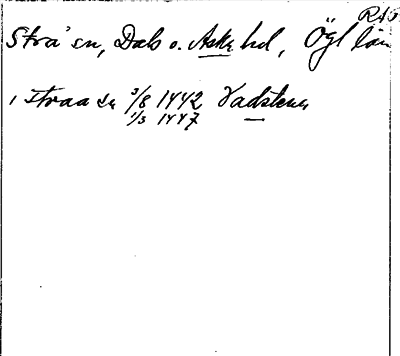 RAP
Strå sn, Dals o. Aska hd, Ögl län
i straa sn 3/8 1442 Vadstena
1/3 1447